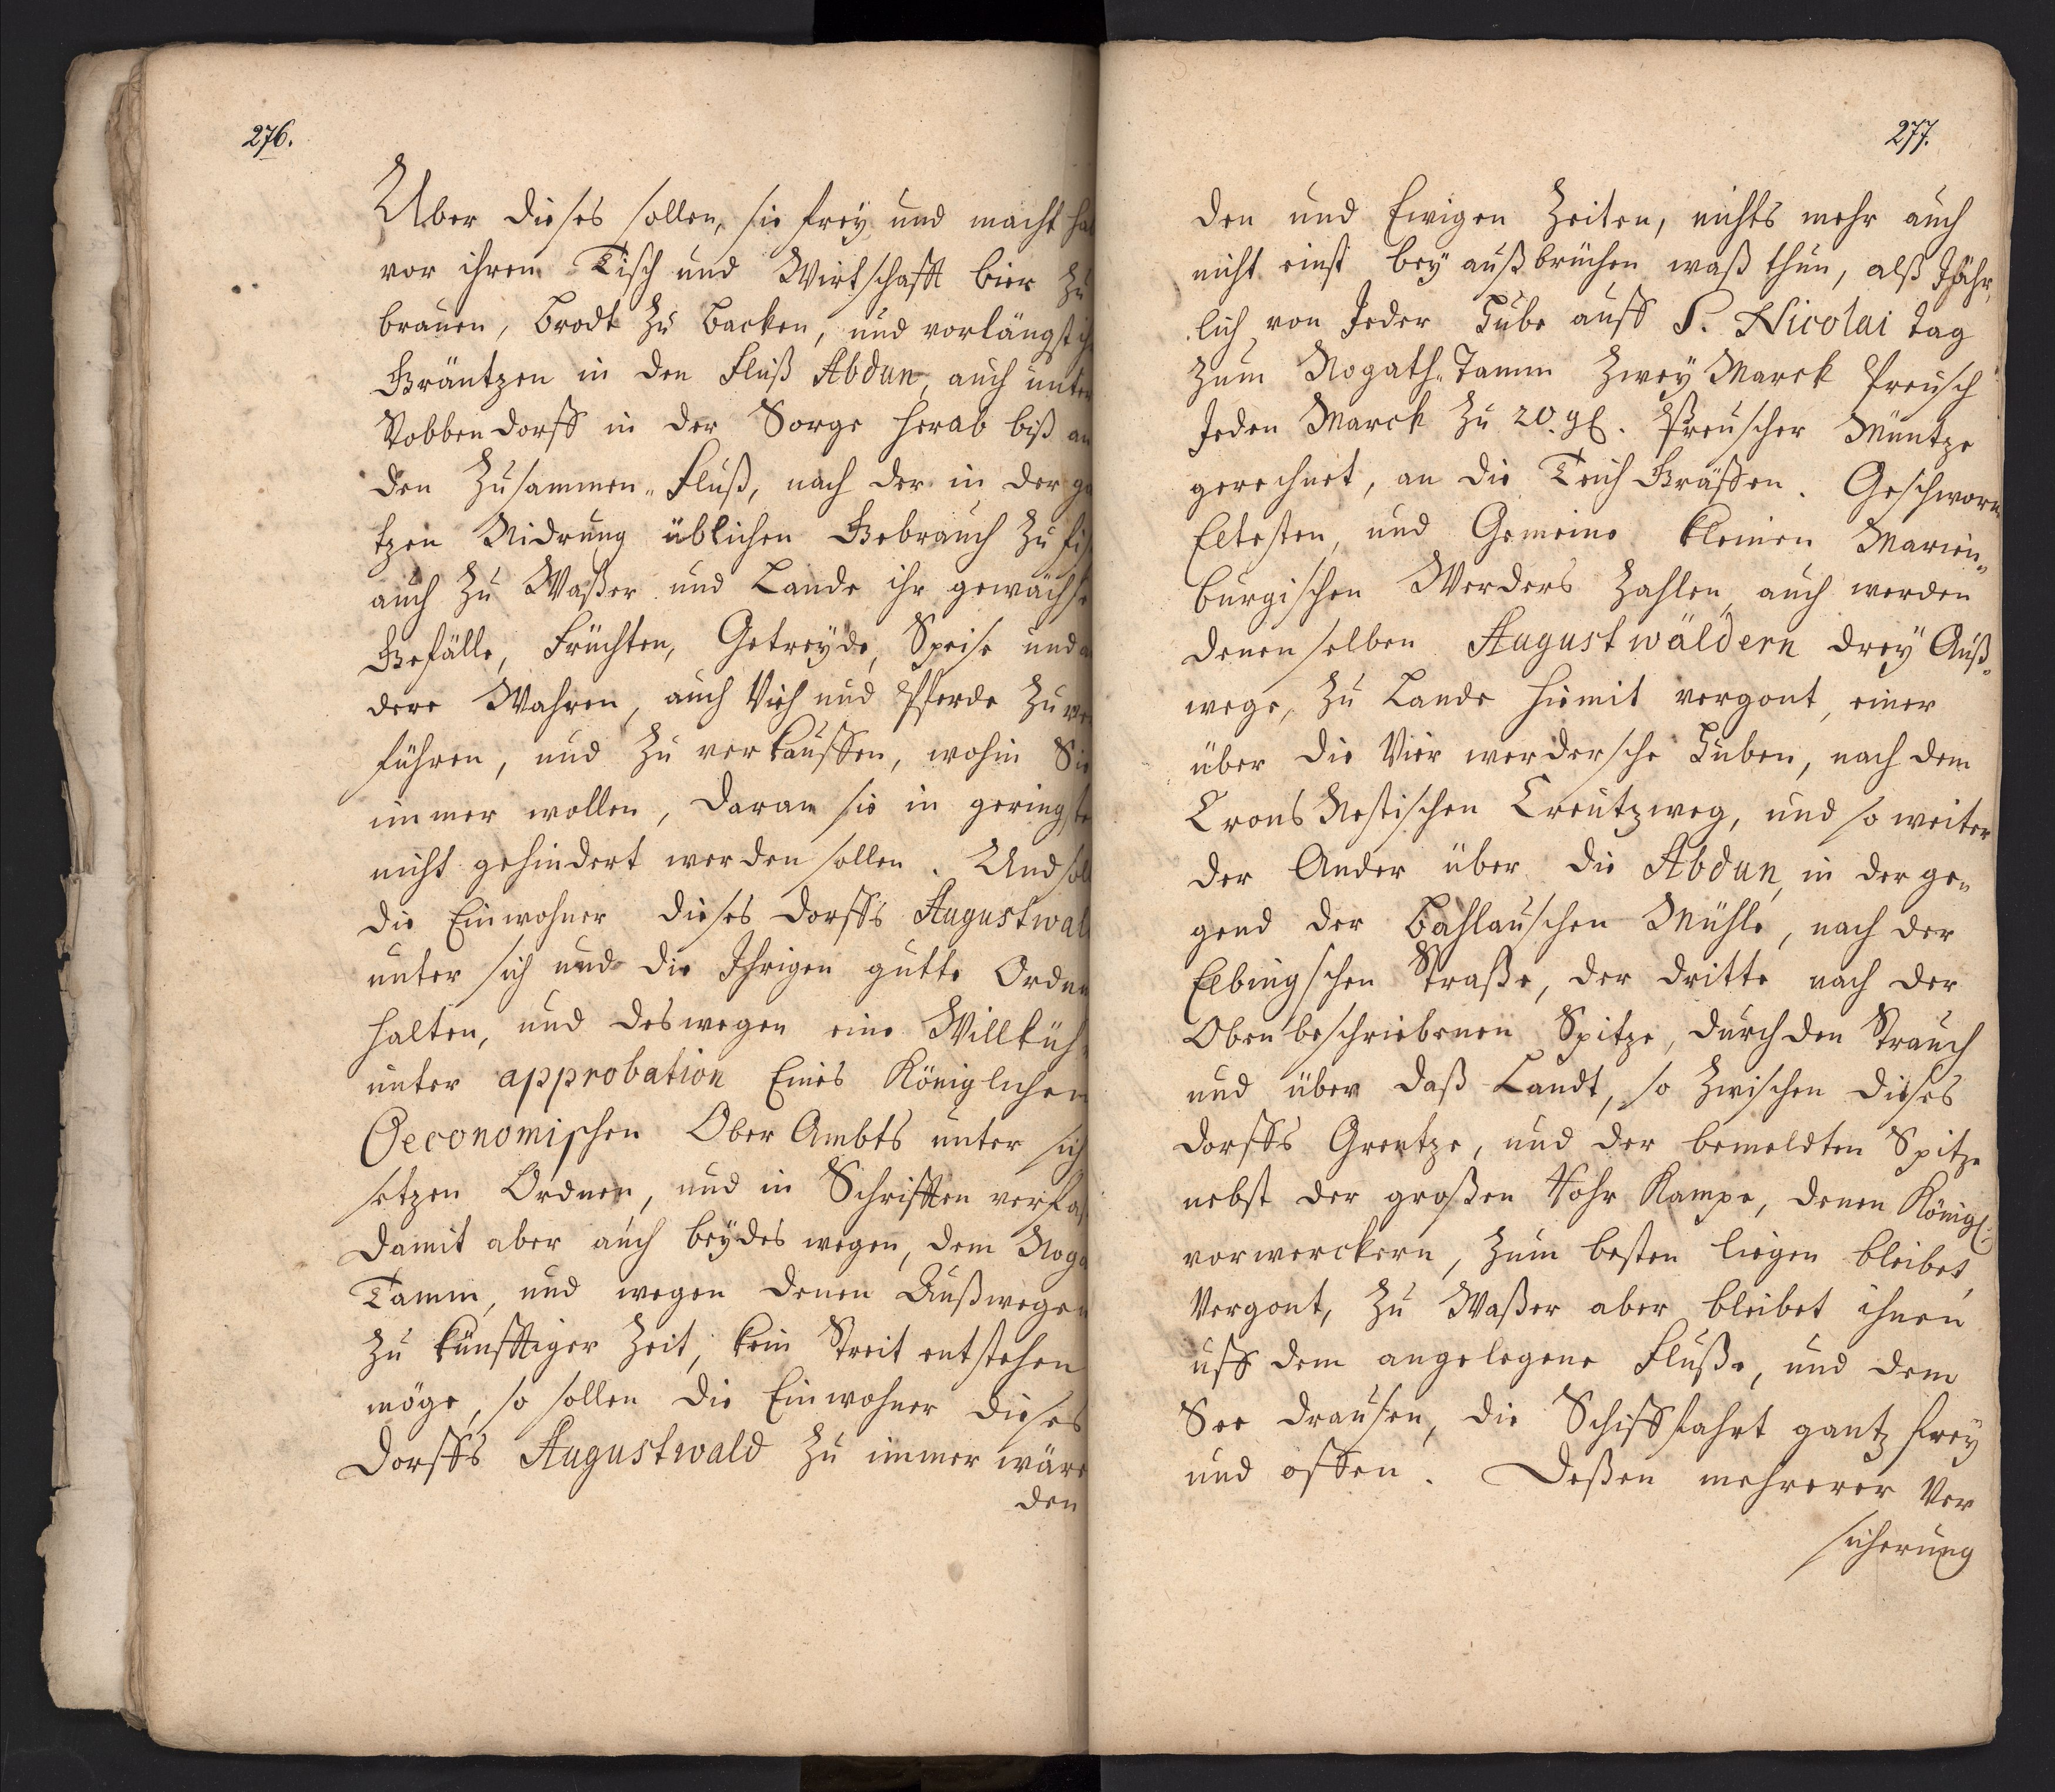 276.
Uber dieses sollen, sie frey und macht hab
vor ihren Tisch und Wirtschafft bier zu
brauen, Brodt zu Backen, und vorlängst ih
Gräntzen in den Fluß Abdun, auch unter
Robbendorff in der Sorge herab biß an
den Zusammen„Fluß, nach der in der ga
tzen Nidrung üblichen Gebrauch zu fis
auch zu Waßer und Lande ihr gewächse
Gefälle, Früchten, Getreyde, Speise und a
dere Wahren, auch Vieh und Pferde zu ver
führen, und zu verkauffen, wohin Sie
immer wollen, daran sie in geringste
nicht gehindert werden sollen. Und soll
die Einwohner dieses dorffs Augustwal
unter sich und die Ihrigen gutte Ordnu
halten, und deswegen eine Willkühr
unter approbation Eines Königlichen
Oeconomischen Ober Ambts unter sich
setzen Ordnen, und in Schrifften verfas
Damit aber auch beydes wegen, dem Noga
Tamm, und wegen denen Außwegen
zu künfftiger Zeit, kein Streit entstehen
möge, so sollen die Einwohner dieses
Dorffs Augustwald zu immer wäre
den
277.
den und Ewigen Zeiten, nichts mehr auch
nicht einst bey außbrüchen waß thun, alß Jähr„
lich von Jeder Hube auff S. Nicolai tag
zum Nogath„Tamm Zwey Marck Preusch
Jeden Marck zu 20. gl. Preuscher Müntze
gerechnet, an die Teich Gräffen. Geschworn
Eltesten, und Gemeine kleinen Marien„
burgischen Werders Zahlen, auch werden
denenselben Augustwäldern drey Auß„
wege, zu Lande hiemit vergont, einer
über die Vier werdersche Huben, nach dem
Crons Nestischen Creutzweg, und so weiter
der Ander über die Abdun, in der ge„
gend der Bahlauschen Mühle, nach der
Elbingschen Straße, der dritte nach der
Oben beschriebenen Spitze, durch den Strauch
und über daß Landt, so zwischen dieses
dorffs Grentze, und der bemeldten Spitze
nebst der großen Rohr Kampe, denen Königl:
vorwerckern, zum besten liegen bleibet,
Vergont, zu Waßer aber bleibet ihnen
uff dem angelegene Fluße, und dem
See drausen, die Schifffahrt gantz frey
und offen. Deßen mehrerer Ver
sicherung